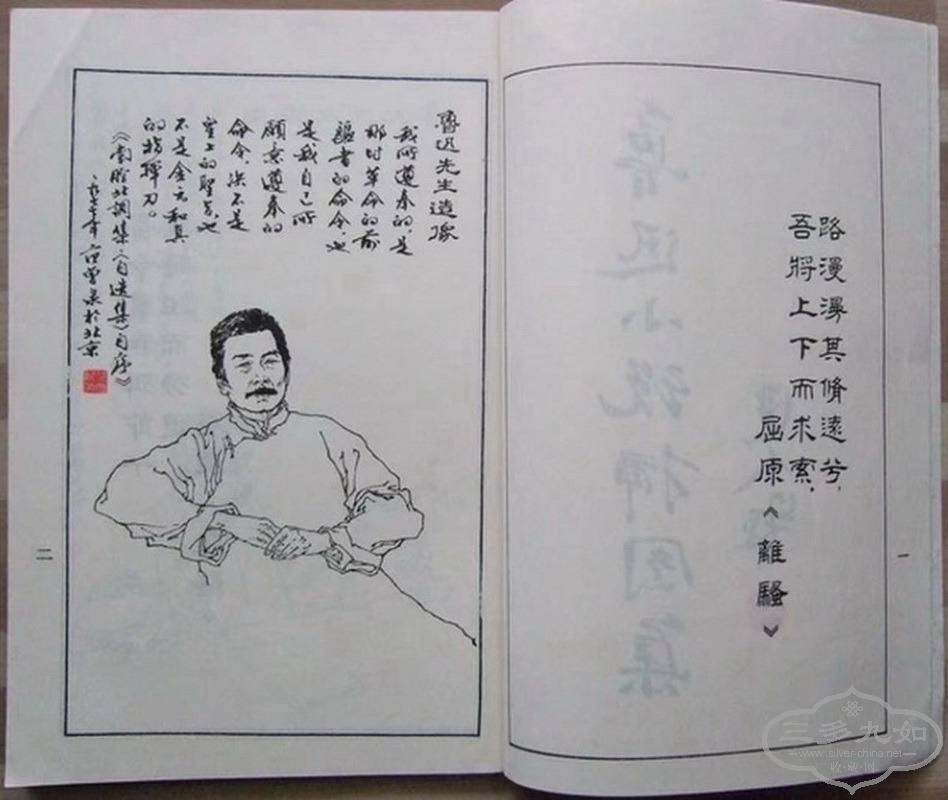 路漫漫其脩遠兮,
吾將上下而求索,
屈原《離騷》
一
魯迅先生造像
我所遵奉的,是
那时革命的前
驅者的命令,也
是我自己所
願意遵奉的
命令,决不是
皇上的聖旨,也
不是金元和真
的指揮刀。
《南腔北調集·〈自选集〉自序》
一九七七年 范曾 於北京
二
三多九如
www.silver-china.net
收·藏·网